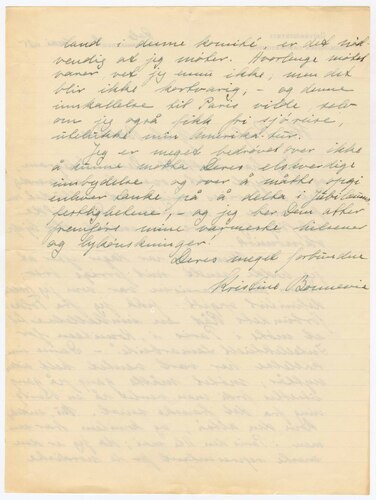 land i denne komité, er det nød-
vendig at jeg møter. Hvorlenge møtet
varer vet jeg ennu ikke, men det
blir ikke kortvarig, – og denne
innkallelse til Paris vilde, selv
om jeg også fikk fri sjøreise,
utelukke min Amerikatur.
Jeg er meget bedrøvet over ikke
å kunne motta Deres elskverdige
innbydelse, og over å måtte opgi
enhver tanke på å delta i Jubilæums
festlighetene, – og jeg ber Dem atter
fremføre mine varmeste hilsener
og lykønskninger.
Deres meget forbundne
Kristine Bonnevie